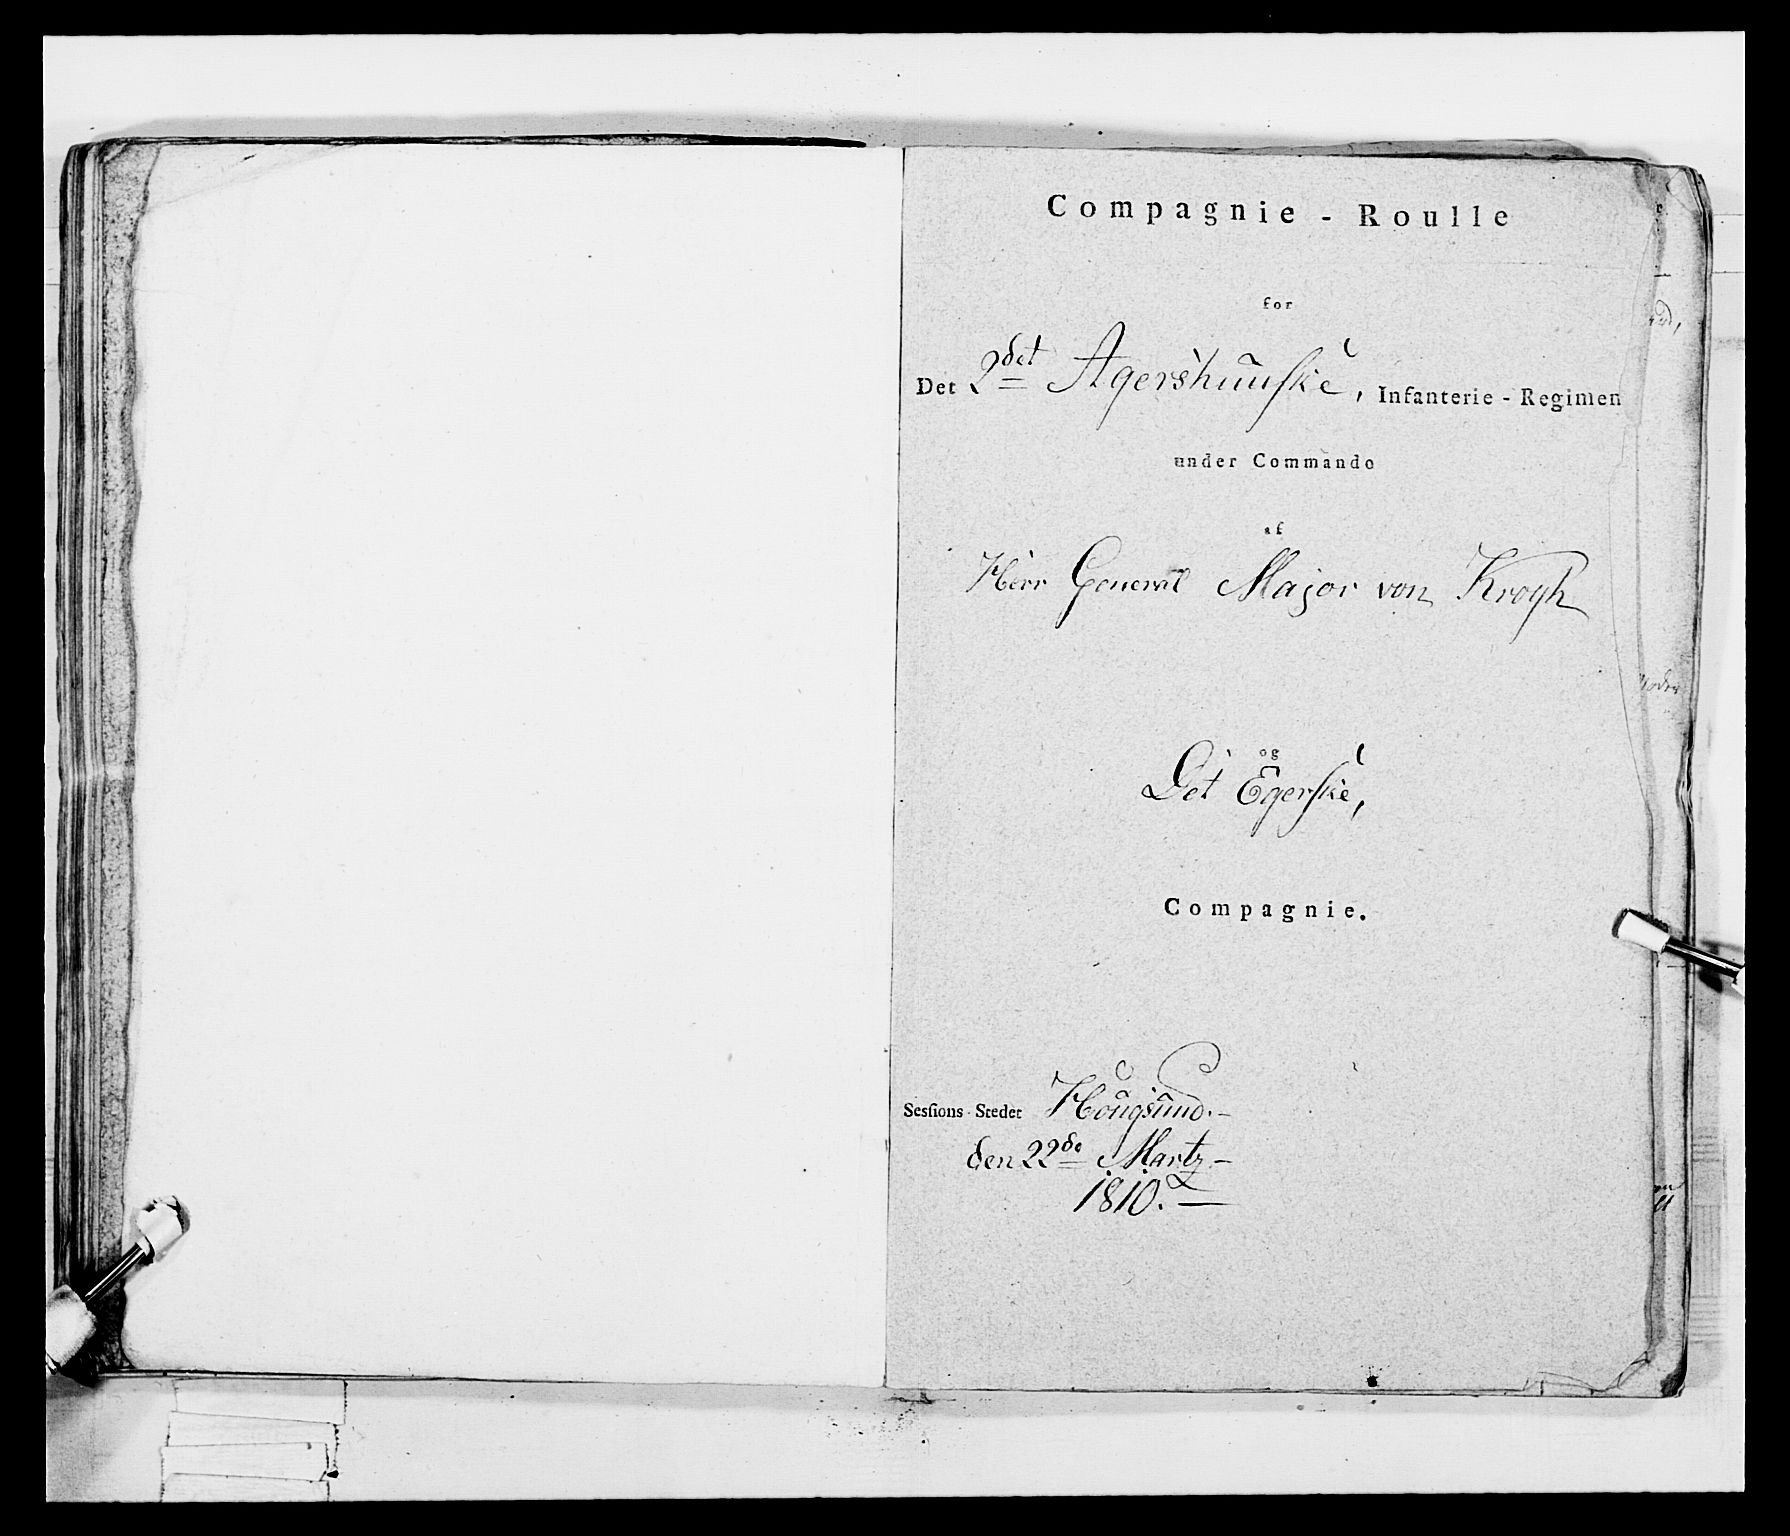 Compagnie - Roulle
for
Det 2det Agershuuske, Infanterie - Regimen
under Commando
af
Herr General Major von Krogh
og
Det Egerske,
Compagnie.
Sessions-Stedet Hougsund.-
den 22de Martz-
1810.-